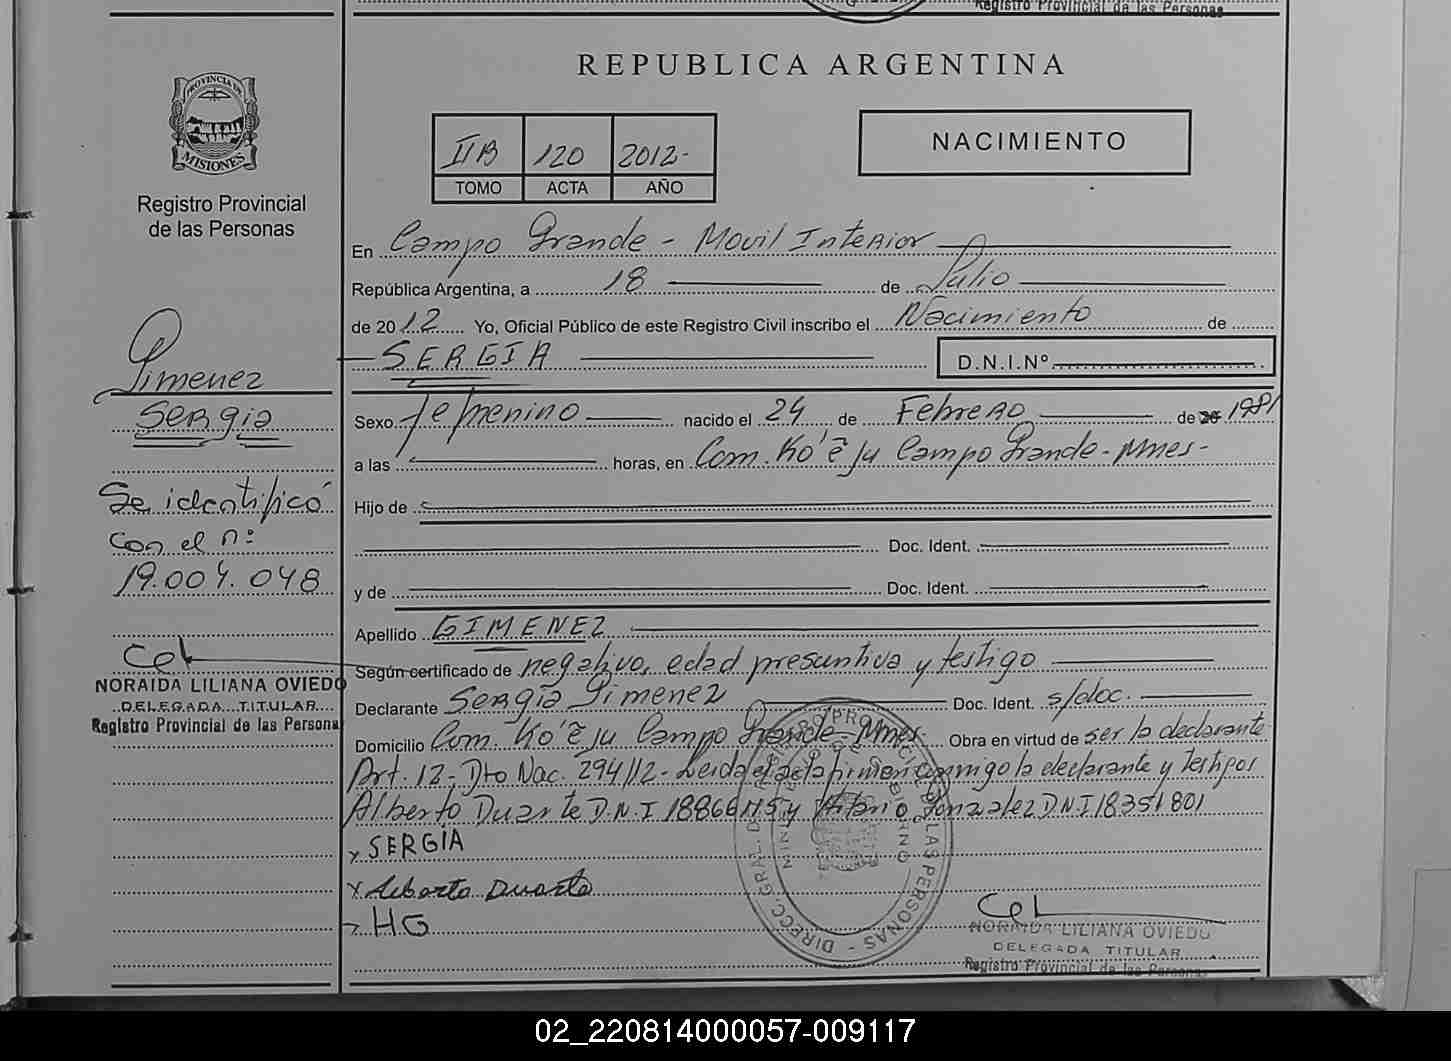 Registro Provincial de las Personas
REPUBLICA ARGENTINA
PROVINCIA DE
MISIONES
Registro Provincial
de las Personas
IIB 120 2012-
TOMO ACTA AÑO
NACIMIENTO
En Campo Grande - Movil Interior
República Argentina, a 18 de Julio
de 2012 Yo, Oficial Público de este Registro Civil inscribo el Nacimiento de
SERGIA D.N.I.Nº
Gimenez
Sergia
Se identificó
con el nº
19.004.048
NORAIDA LILIANA OVIEDO
DELEGADA TITULAR
Registro Provincial de las Persona
Sexo femenino nacido el 24 de Febrero de 1981
a las horas, en Com. Ko'ẽ Ju Campo Grande - Mnes-
Hijo de
Doc. Ident.
y de Doc. Ident.
Apellido GIMENEZ
Según certificado de negativo, edad presuntiva y testigo
Declarante Sergia Gimenez Doc. Ident. s/doc.
Domicilio Com. Ko'ẽ Ju Campo Grande - Mnes Obra en virtud de ser la declarante
Art. 12 - Dto Nac. 294/12 - Leida el acta firman conmigo la declarante y testigos
Alberto Duarte D.N.I y Gonzalez D.N.I 18351801
x SERGIA
x Alberto Duarte
HG
DIRECC. GRAL. DEL REGISTRO PROVINCIAL DE LAS PERSONAS -
MINISTERIO DE GOBIERNO
NORAIDA LILIANA OVIEDO
DELEGADA TITULAR
Registro Provincial de las Personas
02_220814000057-009117